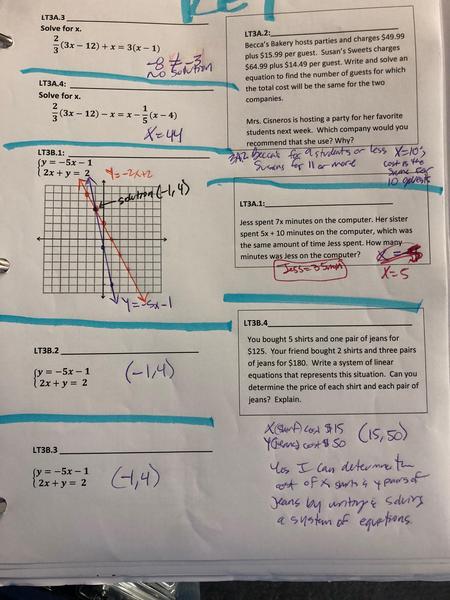 KEY
LT3A.3
Solve for x.
2/3(3x − 12) + x = 3(x − 1)
-8 ≠ -3
no solution
LT3A.4:
Solve for x.
2/3(3x − 12) − x = x − 1/5(x − 4)
X=44
LT3B.1:
{y = −5x − 1
{2x + y = 2
Y=-2x+2
solution (-1,4)
Y=-5x-1
LT3B.2
{y = −5x − 1
{2x + y = 2
(-1,4)
LT3B.3
{y = −5x − 1
{2x + y = 2
(-1,4)
LT3A.2:
Becca's Bakery hosts parties and charges $49.99
plus $15.99 per guest. Susan's Sweets charges
$64.99 plus $14.49 per guest. Write and solve an
equation to find the number of guests for which
the total cost will be the same for the two
companies.
Mrs. Cisneros is hosting a party for her favorite
students next week. Which company would you
recommend that she use? Why?
3A2 Becca's for 9 students or less
Susans for 11 or more
X=10,
cost is the
same for
10 guests
LT3A.1:
Jess spent 7x minutes on the computer. Her sister
spent 5x + 10 minutes on the computer, which was
the same amount of time Jess spent. How many
minutes was Jess on the computer?
Jess=35min
X=5
X=5
LT3B.4
You bought 5 shirts and one pair of jeans for
$125. Your friend bought 2 shirts and three pairs
of jeans for $180. Write a system of linear
equations that represents this situation. Can you
determine the price of each shirt and each pair of
jeans? Explain.
X(shirt) cost $15
Y(jeans) cost $50
(15,50)
Yes I can determine the
cost of x shirts & y pairs of
jeans by writing & solving
a system of equations.